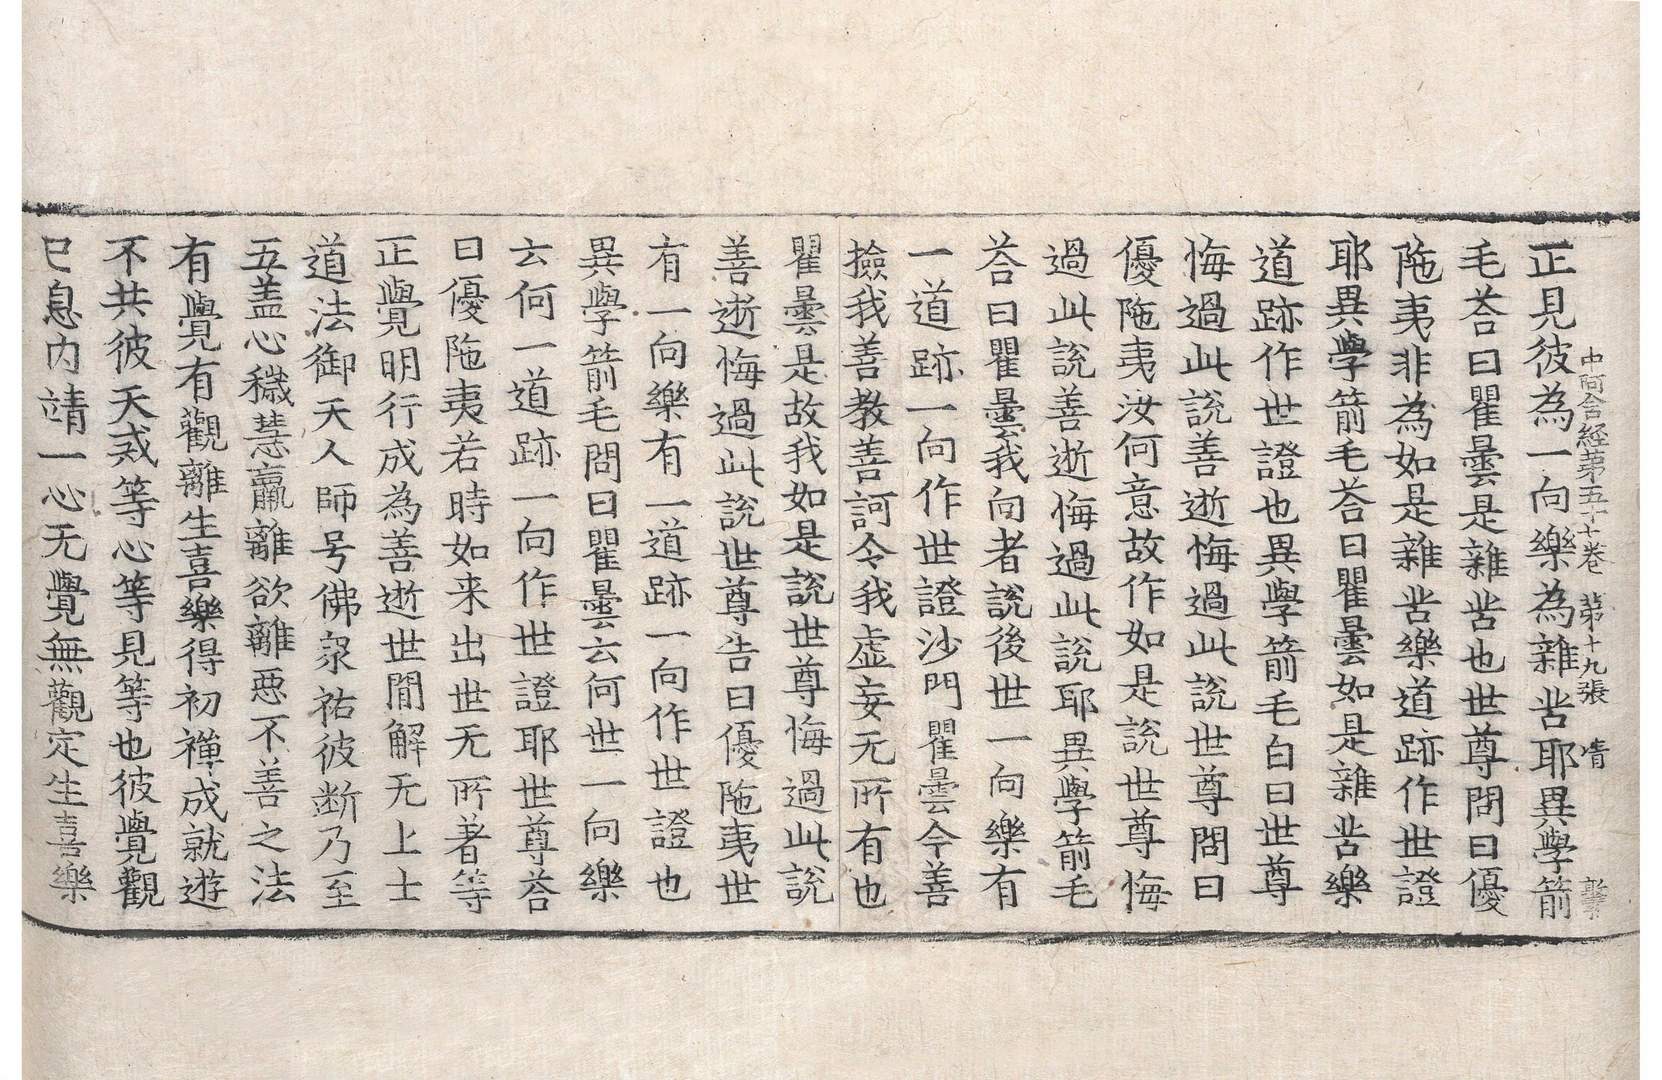 中阿含経苐五十七巻 苐十九張 情
正見彼為一向樂為雜苦耶異學箭
毛荅曰瞿曇是雜苦也世尊問曰優
陁夷非為如是雜苦樂道跡作世證
耶異學箭毛荅曰瞿曇如是雜苦樂
道跡作世證也異學箭毛白曰世尊
悔過此說善逝悔過此說世尊問曰
優陁夷汝何意故作如是說世尊悔
過此說善逝悔過此說耶異學箭毛
荅曰瞿曇我向者說後世一向樂有
一道跡一向作世證沙門瞿曇今善
撿我善教善訶令我虛妄无所有也
瞿曇是故我如是說世尊悔過此說
善逝悔過此說世尊告曰優陁夷世
有一向樂有一道跡一向作世證也
異學箭毛問曰瞿曇云何世一向樂
云何一道跡一向作世證耶世尊荅
曰優陁夷若時如来出世无所著等
正覺明行成為善逝世閒解无上士
道法御天人師号佛衆祐彼断乃至
五盖心穢慧羸離欲離惡不善之法
有覺有觀離生喜樂得初禪成就遊
不共彼天戒等心等見等也彼覺觀
已息内靖一心无覺無觀定生喜樂